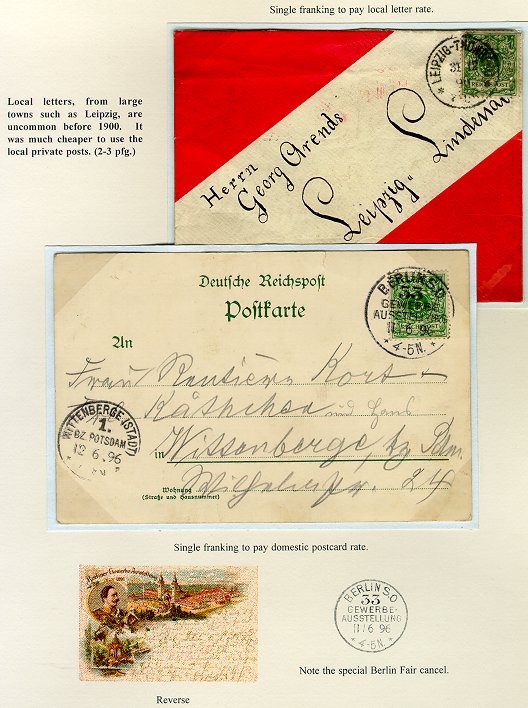 Single franking to pay local letter rate.
Local letters, from large
towns such as Leipzig, are
uncommon before 1900. It
was much cheaper to use the
local private posts. (2-3 pfg.)
LEIPZIG-
Herrn
Georg Arends
Leipzig
Lindenau
Deutsche Reichspost
Postkarte
An
BERLIN S.O
33
GEWERBE-
AUSSTELLUNG
11/6 96
* 4-5N. *
Frau Rentière Kort
Käthchen und Hans
in Wittenberge, bz
WITTENBERGE (STADT)
1.
BZ. POTSDAM
12 6 96
Wohnung
(Straße und Hausnummer)
24
Single franking to pay domestic postcard rate.
BERLIN S.O
33
GEWERBE-
AUSSTELLUNG
11/6 96
* 4-5N. *
Note the special Berlin Fair cancel.
Reverse